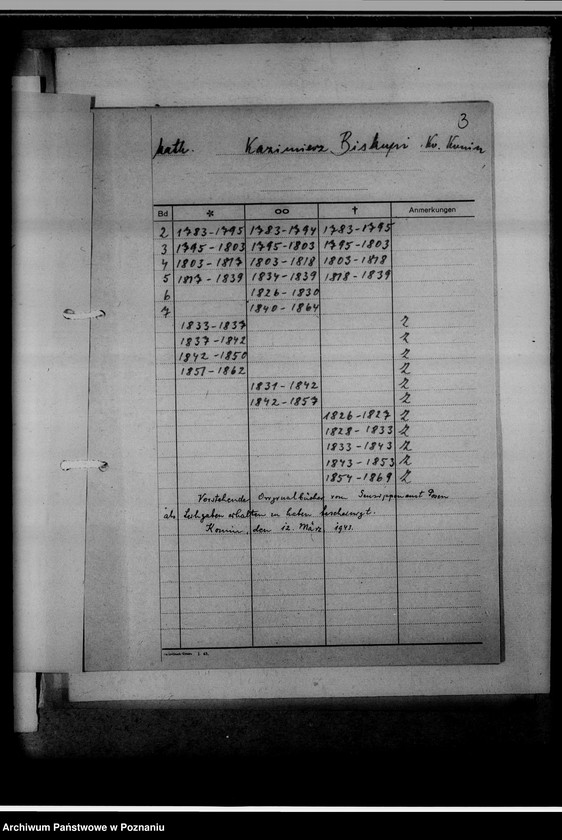 3
kath. Kazimierz Biskupi Kr. Konin
Bd * ∞ † Anmerkungen
2 1783-1795 1783-1794 1783-1795
3 1795-1803 1795-1803 1795-1803
4 1803-1817 1803-1818 1803-1818
5 1817-1839 1834-1839 1818-1839
6 1826-1830
7 1840-1864
1833-1837 Z
1837-1842 Z
1842-1850 Z
1851-1862 Z
1831-1842 Z
1842-1857 Z
1826-1827 Z
1828-1833 Z
1833-1843 Z
1843-1853 Z
1854-1869 Z
Vorstehende Originalbücher vom Gausippenamt Posen
als Leihgaben erhalten zu haben bescheinigt.
Konin, den 12. März 1941.
Archiwum Państwowe w Poznaniu